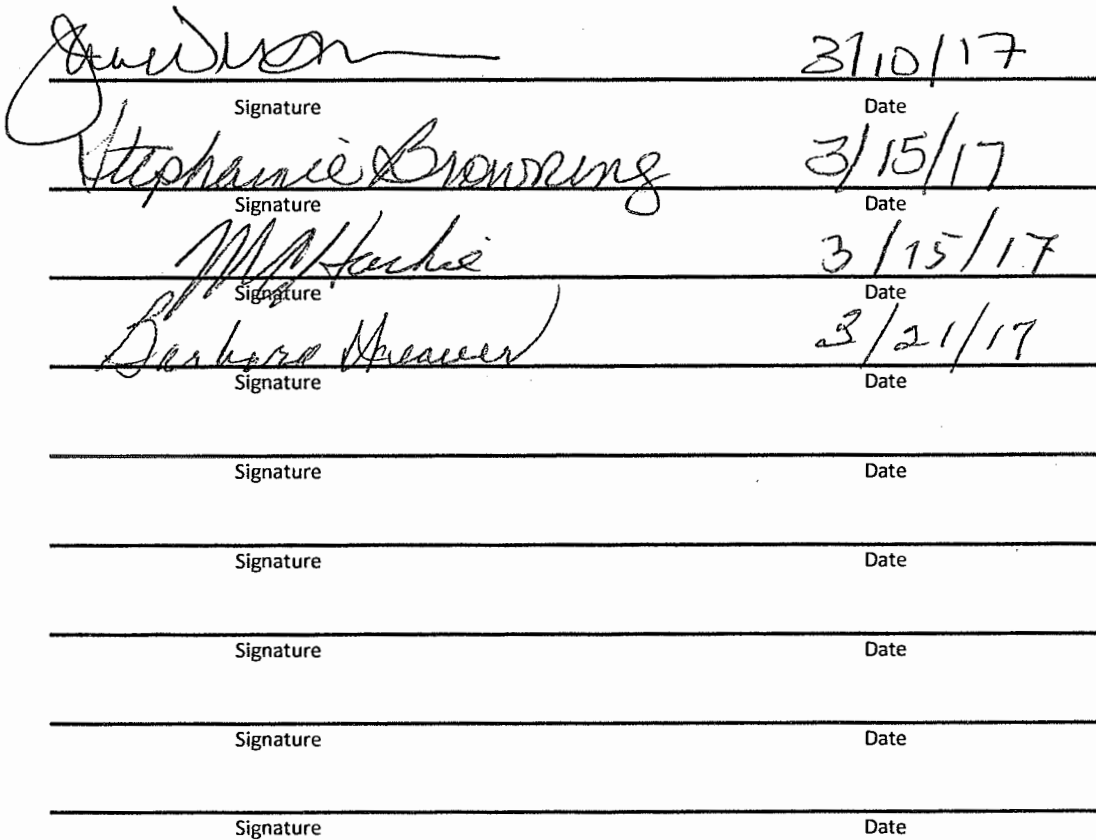 3/10/17
Signature Date
Stephanie Browning 3/15/17
Signature Date
3/15/17
Signature Date
Barbara 3/21/17
Signature Date
Signature Date
Signature Date
Signature Date
Signature Date
Signature Date